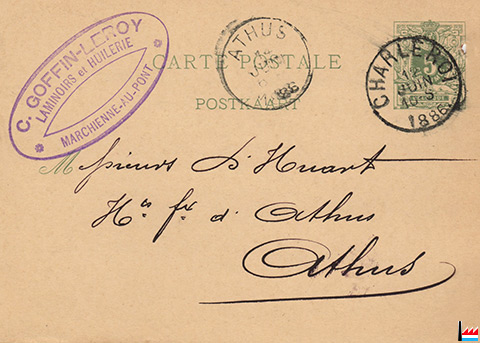 C. GOFFIN-LEROY
LAMINOIRS et HUILERIE
MARCHIENNE-AU-PONT
ATHUS
1886
CHARLEROY
12
JUIN
1886
CARTE POSTALE
POSTKAART
Messieurs d'Huart
Hts fx d'Athus
Athus